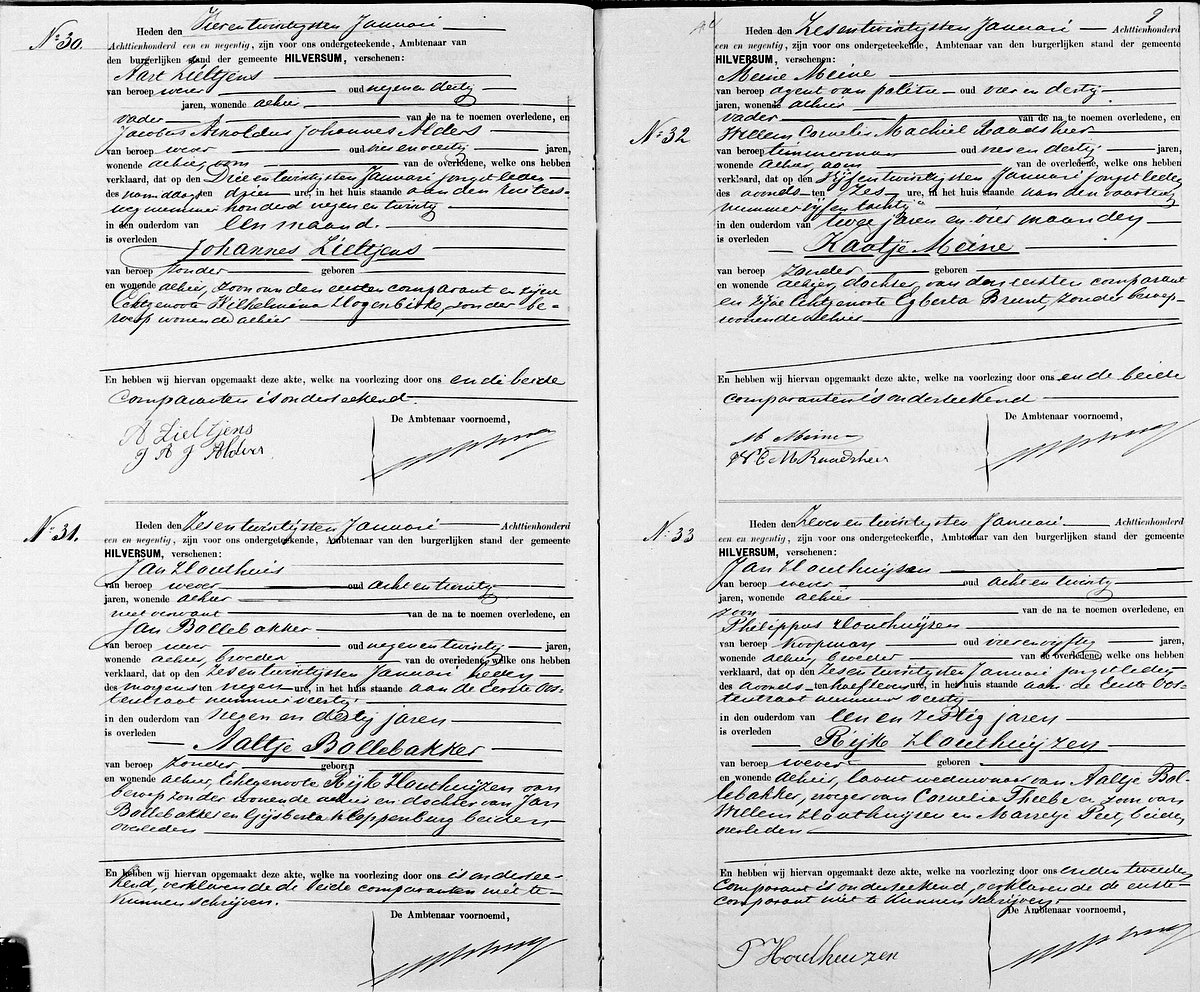 No 30.
Heden den Vier en twintigsten Januari
Achttienhonderd een en negentig, zijn voor ons ondergeteekende, Ambtenaar van
den burgerlijken stand der gemeente HILVERSUM, verschenen:
Aart Zieltjens
van beroep wever oud negen en dertig
jaren, wonende alhier
vader van de na te noemen overledene, en
Jacobus Arnoldus Johannes Alders
van beroep wever oud jaren,
wonende alhier, oom van de overledene, welke ons hebben
verklaard, dat op den Drie en twintigsten Januari jongstleden
des namiddags ten drie ure, in het huis staande aan den
weg nummer honderd negen en twintig
in den ouderdom van een maand.
is overleden
Johannes Zieltjens
van beroep zonder geboren
en wonende alhier, zoon van den eersten comparant en zijne
Echtgenoote Wilhelmina Hogenbirk, zonder be-
roep wonende alhier
En hebben wij hiervan opgemaakt deze akte, welke na voorlezing door ons en de beide
comparanten is onderteekend.
De Ambtenaar voornoemd,
A Zieltjens
J A J Alders
No 31.
Heden den Zes en twintigsten Januari Achttienhonderd
een en negentig, zijn voor ons ondergeteekende, Ambtenaar van den burgerlijken stand der gemeente
HILVERSUM, verschenen:
Jan Houthuis
van beroep wever oud acht en twintig
jaren, wonende alhier
niet verwant van de na te noemen overledene, en
Jan Bollebakker
van beroep wever oud negen en twintig jaren,
wonende alhier, broeder van de overledene, welke ons hebben
verklaard, dat op den Zes en twintigsten Januari heden
des morgens ten negen ure, in het huis staande aan de Eerste Oos-
terstraat nummer veertig
in den ouderdom van negen en dertig jaren
is overleden
Aaltje Bollebakker
van beroep zonder geboren
en wonende alhier, Echtgenoote Rijk Houthuijzen van
beroep zonder wonende alhier en dochter van Jan
Bollebakker en Gijsberta Kloppenburg beiden
overleden
En hebben wij hiervan opgemaakt deze akte, welke na voorlezing door ons is ondertee-
kend, verklarende de beide comparanten niet te
kunnen schrijven.
De Ambtenaar voornoemd,
9
No 32
Heden den Zes en twintigsten Januari Achttienhonderd
een en negentig, zijn voor ons ondergeteekende, Ambtenaar van den burgerlijken stand der gemeente
HILVERSUM, verschenen:
Meine Meine
van beroep agent van politie oud vier en dertig
jaren, wonende alhier
vader van de na te noemen overledene, en
Willem Cornelis Machiel Raadsheer
van beroep timmerman oud zes en dertig jaren,
wonende alhier, oom van de overledene, welke ons hebben
verklaard, dat op den Vijf en twintigsten Januari jongstleden
des avonds ten zes ure, in het huis staande aan den
nummer vijf en tachtig
in den ouderdom van twee jaren en vier maanden
is overleden
Kaatje Meine
van beroep zonder geboren
en wonende alhier, dochter van den eersten comparant
en zijne Echtgenoote Egberta Brunt, zonder beroep
wonende alhier
En hebben wij hiervan opgemaakt deze akte, welke na voorlezing door ons en de beide
comparanten is onderteekend
De Ambtenaar voornoemd,
M Meine
W C M Raadsheer
No 33
Heden den Zeven en twintigsten Januari Achttienhonderd
een en negentig, zijn voor ons ondergeteekende, Ambtenaar van den burgerlijken stand der gemeente
HILVERSUM, verschenen:
Jan Houthuijsen
van beroep wever oud acht en twintig
jaren, wonende alhier
zoon van de na te noemen overledene, en
Philippus Houthuijzen
van beroep Koopman oud vier en vijftig jaren,
wonende alhier, broeder van de overledene, welke ons hebben
verklaard, dat op den Zes en twintigsten Januari jongstleden
des avonds ten half tien ure, in het huis staande aan de Eerste Oos-
terstraat nummer veertig
in den ouderdom van Een en zestig jaren
is overleden
Rijk Houthuijzen
van beroep wever geboren
en wonende alhier, laatst weduwnaar van Aaltje Bol-
lebakker, vroeger van Cornelia Theebe en zoon van
Willem Houthuijsen en Marretje Peet, beiden
overleden
En hebben wij hiervan opgemaakt deze akte, welke na voorlezing door ons en den tweeden
comparant is onderteekend, verklarende de eerste
comparant niet te kunnen schrijven.
De Ambtenaar voornoemd,
P Houthuizen